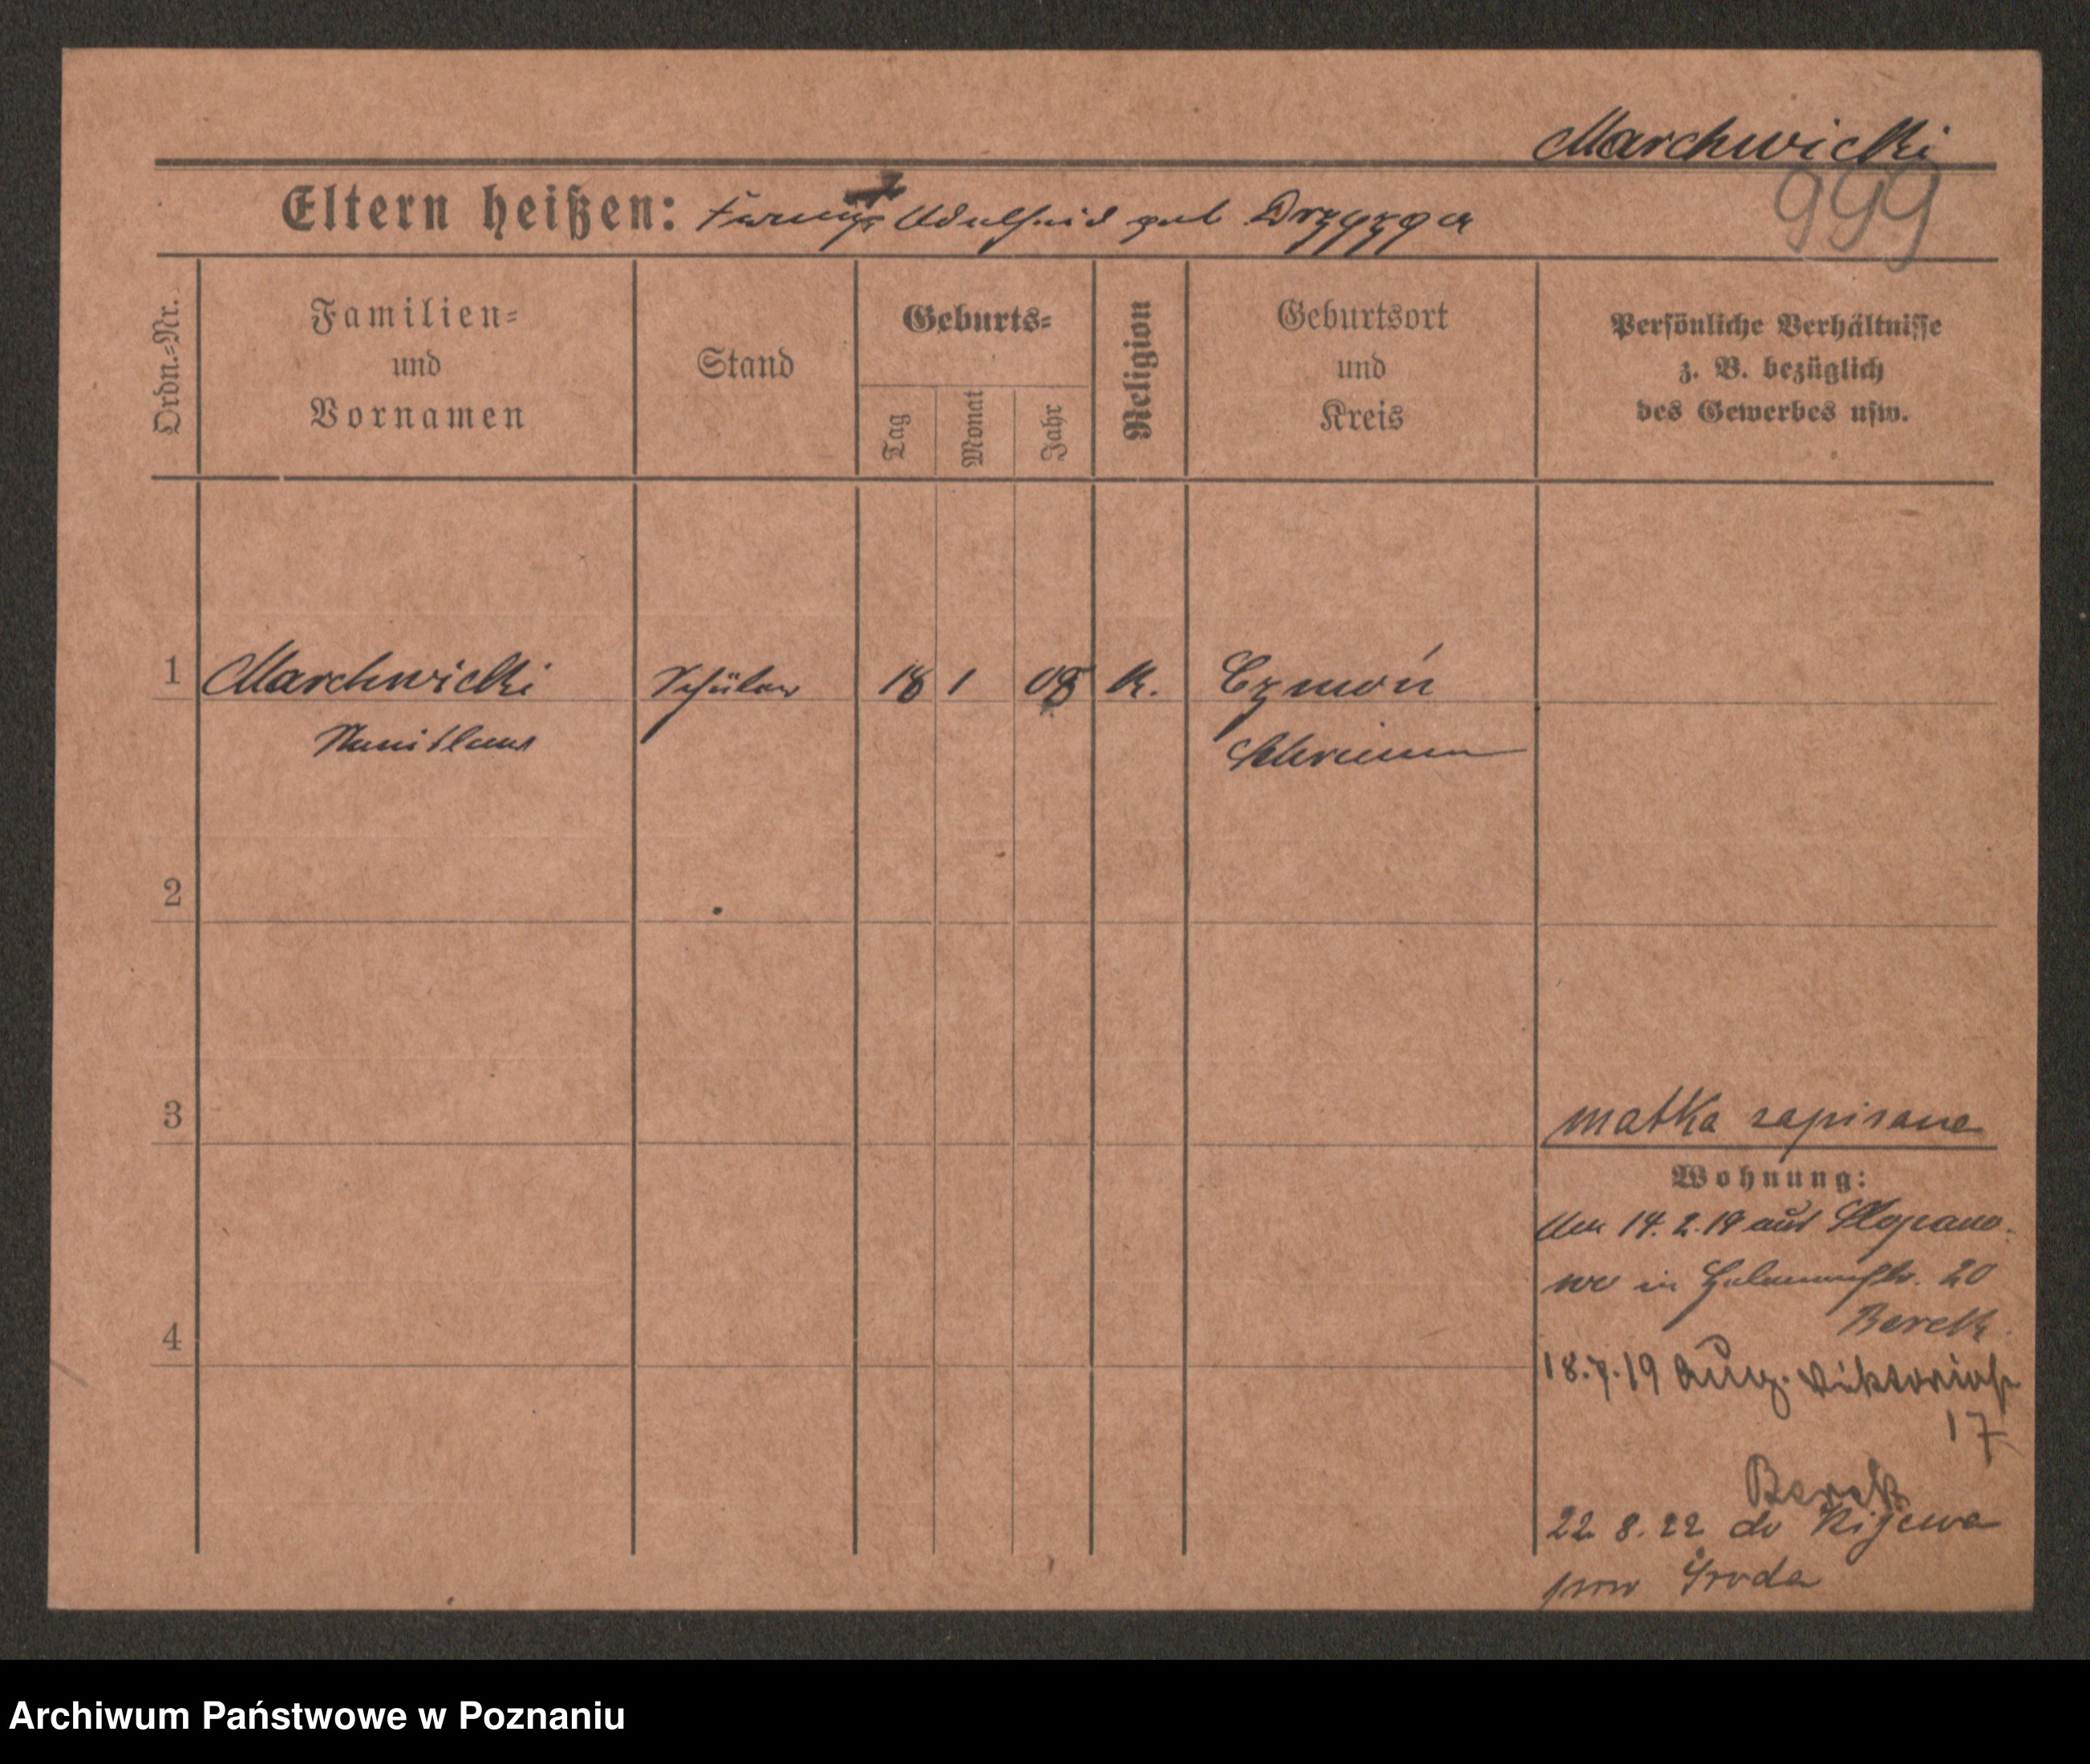 Marchwicki
999
Eltern heißen: Franz † Adelheid geb Drzyzga
Ordn.-Nr.
Familien-
und
Vornamen
Stand
Geburts-
Tag
Monat
Jahr
Religion
Geburtsort
und
Kreis
Persönliche Verhältnisse
z. B. bezüglich
des Gewerbes usw.
1 Marchwicki Schüler 18 1 08 K. Czmoń
Stanislaus Schrimm
2
3
matka zapisana
Wohnung:
14. 2. 19 aus Klopano-
wo in 20
Berck
4
18.7.19 Aug. Viktoriastr
17
Berck
22 8. 22 do Kijewa
pow Środa
Archiwum Państwowe w Poznaniu